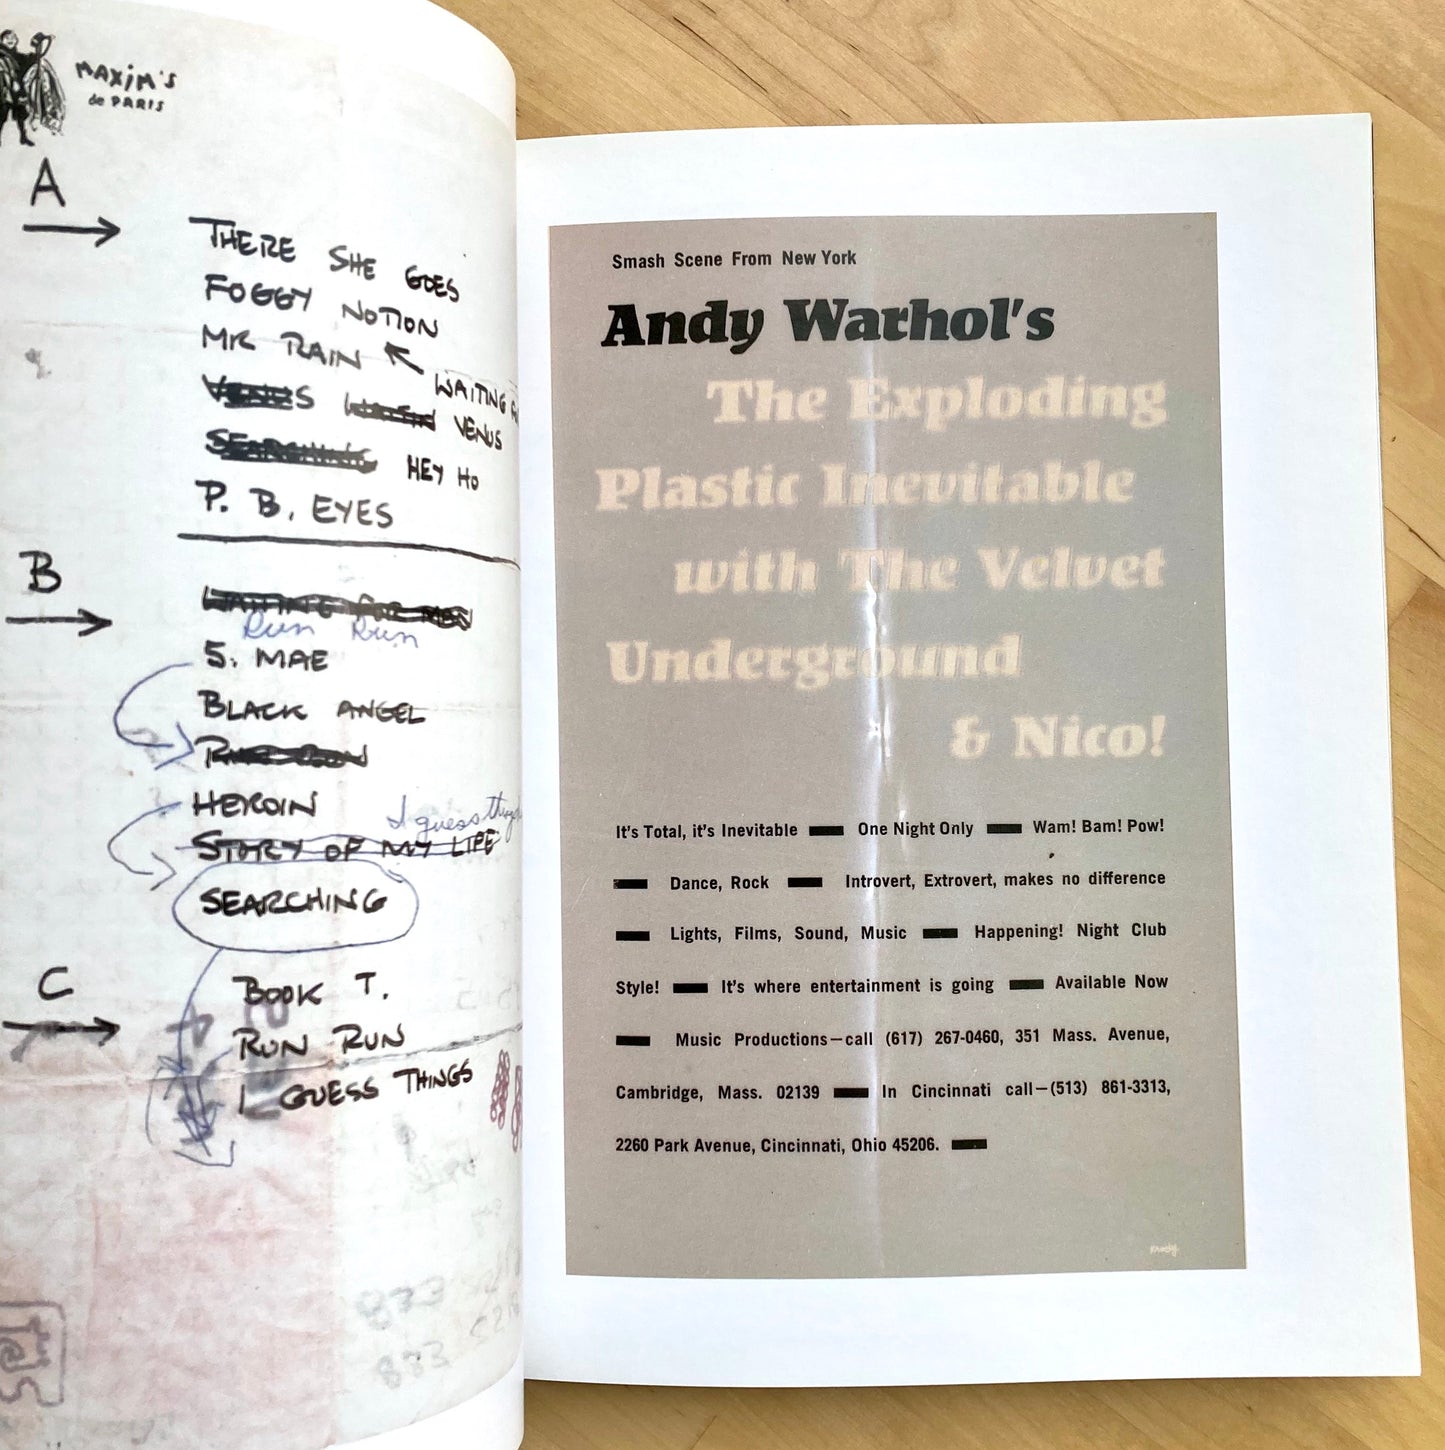 MAXIM'S
de PARIS
A
THERE SHE GOES
FOGGY NOTION
MR RAIN
WAITING
VENUS VENUS
SEARCHING HEY HO
P. B. EYES
B
WAITING FOR MAN
Run Run
S. MAE
BLACK ANGEL
RUN RUN
HEROIN
I guess things
STORY OF MY LIFE
SEARCHING
C
BOOK T.
RUN RUN
I GUESS THINGS
833
883
Smash Scene From New York
Andy Warhol's
The Exploding
Plastic Inevitable
with The Velvet
Underground
& Nico!
It's Total, it's Inevitable — One Night Only — Wam! Bam! Pow!
— Dance, Rock — Introvert, Extrovert, makes no difference
— Lights, Films, Sound, Music — Happening! Night Club
Style! — It's where entertainment is going — Available Now
— Music Productions—call (617) 267-0460, 351 Mass. Avenue,
Cambridge, Mass. 02139 — In Cincinnati call—(513) 861-3313,
2260 Park Avenue, Cincinnati, Ohio 45206. —